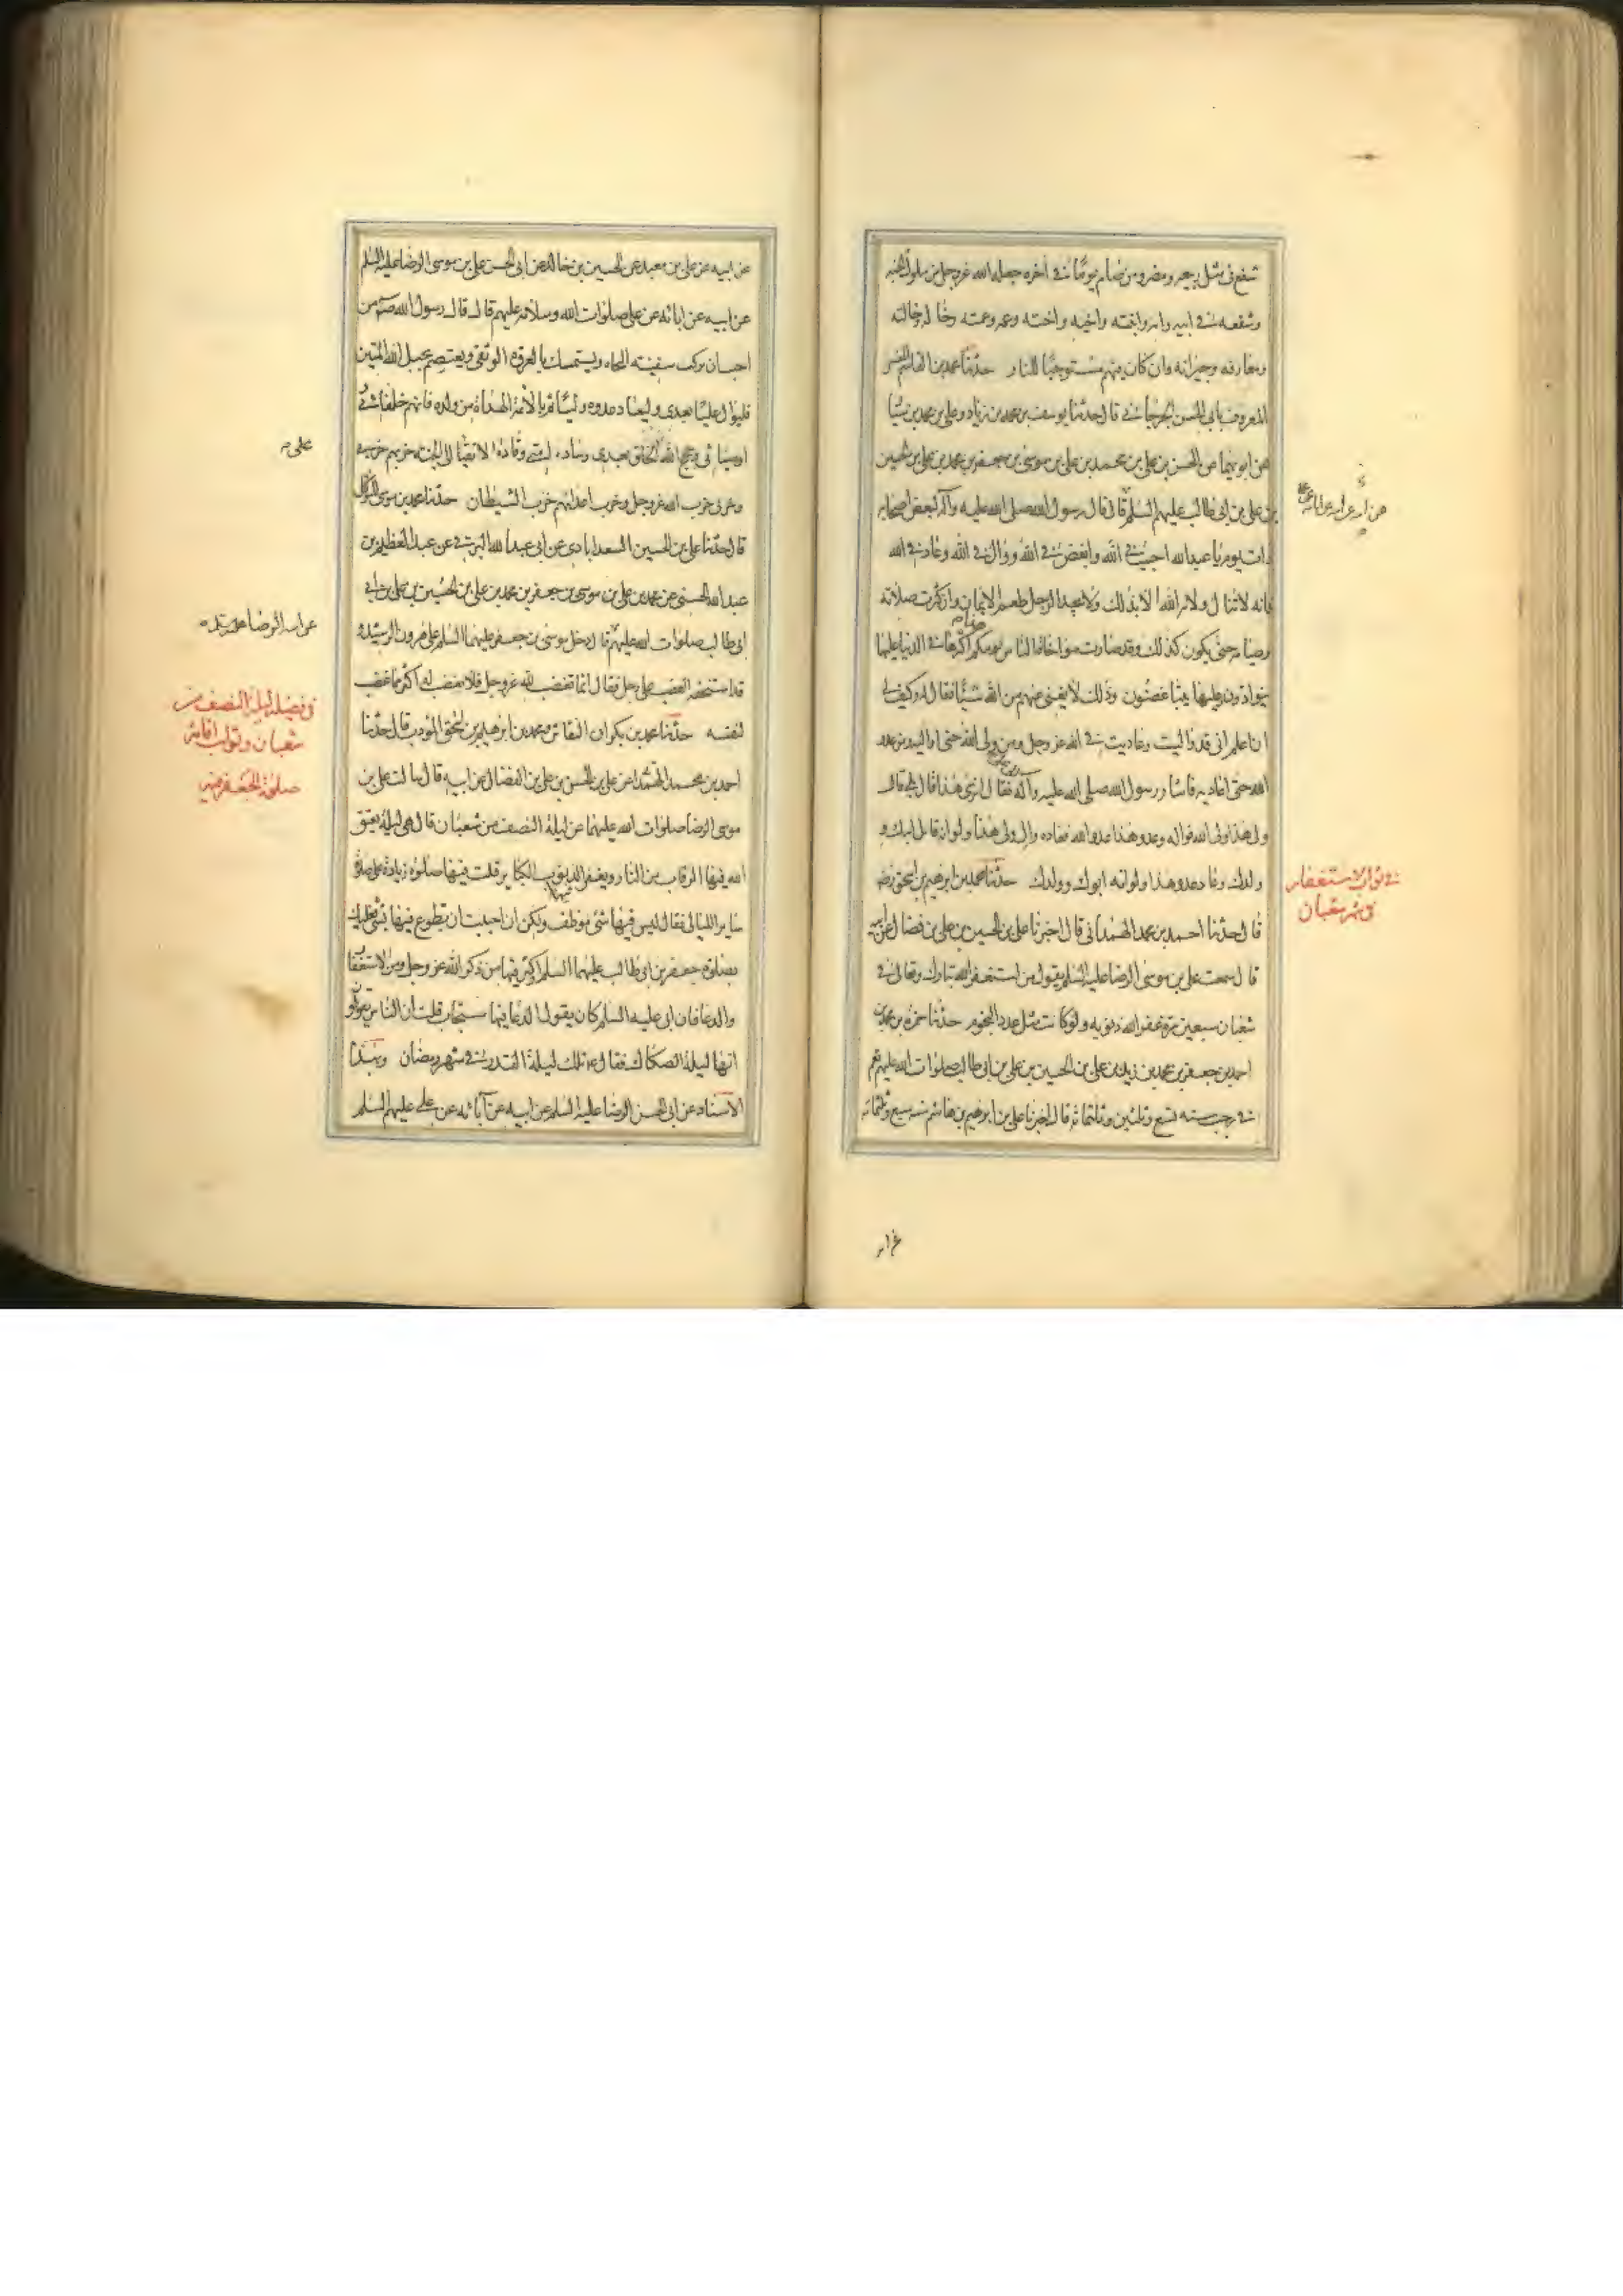 شفع في مثل ربيعة ومضر ومن صام يومًا في آخره جعله الله عز وجل من ملوك الجنة
وشفعه في ابيه وامه وابنه وابنته واخيه واخته وعمه وعمته وخاله وخالته
ومعارفه وجيرانه وان كان فيهم مستوجبًا للنار حدثنا محمد بن القاسم المفسر
المعروف بابي الحسن الجرجاني قال حدثنا يوسف بن محمد بن زياد وعلي بن محمد بن سيار
عن ابويهما عن الحسن بن علي بن محمد بن علي بن موسى بن جعفر بن محمد بن علي بن الحسين
بن علي بن ابي طالب عليهم السلم قال قال رسول الله صلى الله عليه وآله لبعض اصحابه
ذات يوم يا عبد الله احبب في الله وابغض في الله ووال في الله وعاد في الله
فانه لا تنال ولاية الله الا بذلك ولا يجد الرجل طعم الايمان وان كثرت صلاته
وصيامه حتى يكون كذلك وقد صارت مواخاة الناس يومكم اكثرها في الدنيا عليها
يتوادون وعليها يتباغضون وذلك لا يغني عنهم من الله شيئًا فقال له وكيف لي
ان اعلم اني قد واليت وعاديت في الله عز وجل ومن ولي الله حتى اواليه ومن عدو
الله حتى اعاديه فاشار رسول الله صلى الله عليه وآله فقال اترى هذا قال بلى قال
ولي هذا ولي الله فواله وعدو هذا عدو الله فعاده وال ولي هذا ولو انه قاتل ابيك و
ولدك وعاد عدو هذا ولو انه ابوك وولدك حدثنا محمد بن ابرهيم بن اسحق رضه
قال حدثنا احمد بن محمد الهمداني قال اخبرنا علي بن الحسين بن علي بن فضال عن ابيه
قال سمعت علي بن موسى الرضا عليه السلم يقول من استغفر الله تبارك وتعالى في
شعبان سبعين مرة غفر الله ذنوبه ولو كانت مثل عدد النجوم حدثنا حمزة بن محمد بن
احمد بن جعفر بن محمد بن زيد بن علي بن الحسين بن علي بن ابي طالب صلوات الله عليهم بقم
في رجب سنه تسع وثلثين وثلثمائة قال اخبرنا علي بن ابرهيم بن هاشم سنه سبع وثلثمائه
في ثواب الاستغفار
في شهر شعبان
عن ابيه عن علي بن معبد عن الحسين بن خالد عن ابي الحسن علي بن موسى الرضا عليه السلم
عن ابيه عن ابائه عن علي صلوات الله وسلامه عليهم قال قال رسول الله صم من
احب ان يركب سفينه النجاه ويستمسك بالعروة الوثقى ويعتصم بحبل الله المتين
فليوال عليًا بعدي وليعاد عدوه وليأتم بالأئمة الهداة من ولده فانهم خلفائي
اوصيائي وحجج الله الخلق بعدي وساده امتي وقادة الاتقيا الى الجنه حزبهم حزبي
وحزبي حزب الله عز وجل وحزب اعدائهم حزب الشيطان حدثنا محمد بن موسى المتوكل
قال حدثنا علي بن الحسين السعدابادي عن ابي عبد الله البرقي عن عبد العظيم بن
عبد الله الحسني عن محمد بن علي بن موسى بن جعفر بن محمد بن علي بن الحسين بن علي بن ابي
ابي طالب صلوات الله عليهم قال دخل موسى بن جعفر عليهما السلم على هرون الرشيد
قد استحفه الغضب على رجل فقال انما تغضب لله عز وجل فلا تغضب له اكثر مما غضب
لنفسه حدثنا محمد بن بكران النقاش ومحمد بن ابرهيم بن اسحق المؤدب قال حدثنا
احمد بن محمد الهمداني عن علي بن الحسن بن علي بن الفضال عن ابيه قال سالت علي بن
موسى الرضا صلوات الله عليهما عن ليلة النصف من شعبان قال هي ليلة يعتق
الله فيها الرقاب من النار ويغفر الذنوب الكباير قلت فيها صلوة زيادة على صلوة
ساير الليالي فقال ليس فيها شي موظف ولكن ان احببت ان تطوع فيها بشي فعليك
بصلوة جعفر بن ابي طالب عليهما السلم واكثر فيها من ذكر الله عز وجل ومن الاستغفار
والدعا فان ابي عليه السلم كان يقول الدعا فيها مستجاب قلت ان الناس يقولون
انها ليلة الصكاك فقال ع تلك ليلة القدر في شهر رمضان وبهذا
الاسناد عن ابي الحسن الرضا عليه السلم عن ابيه عن آبائه عن علي عليهم السلم
في فضيلة ليلة النصف من
شعبان وثواب اقامة
صلوة الجعفر فيها